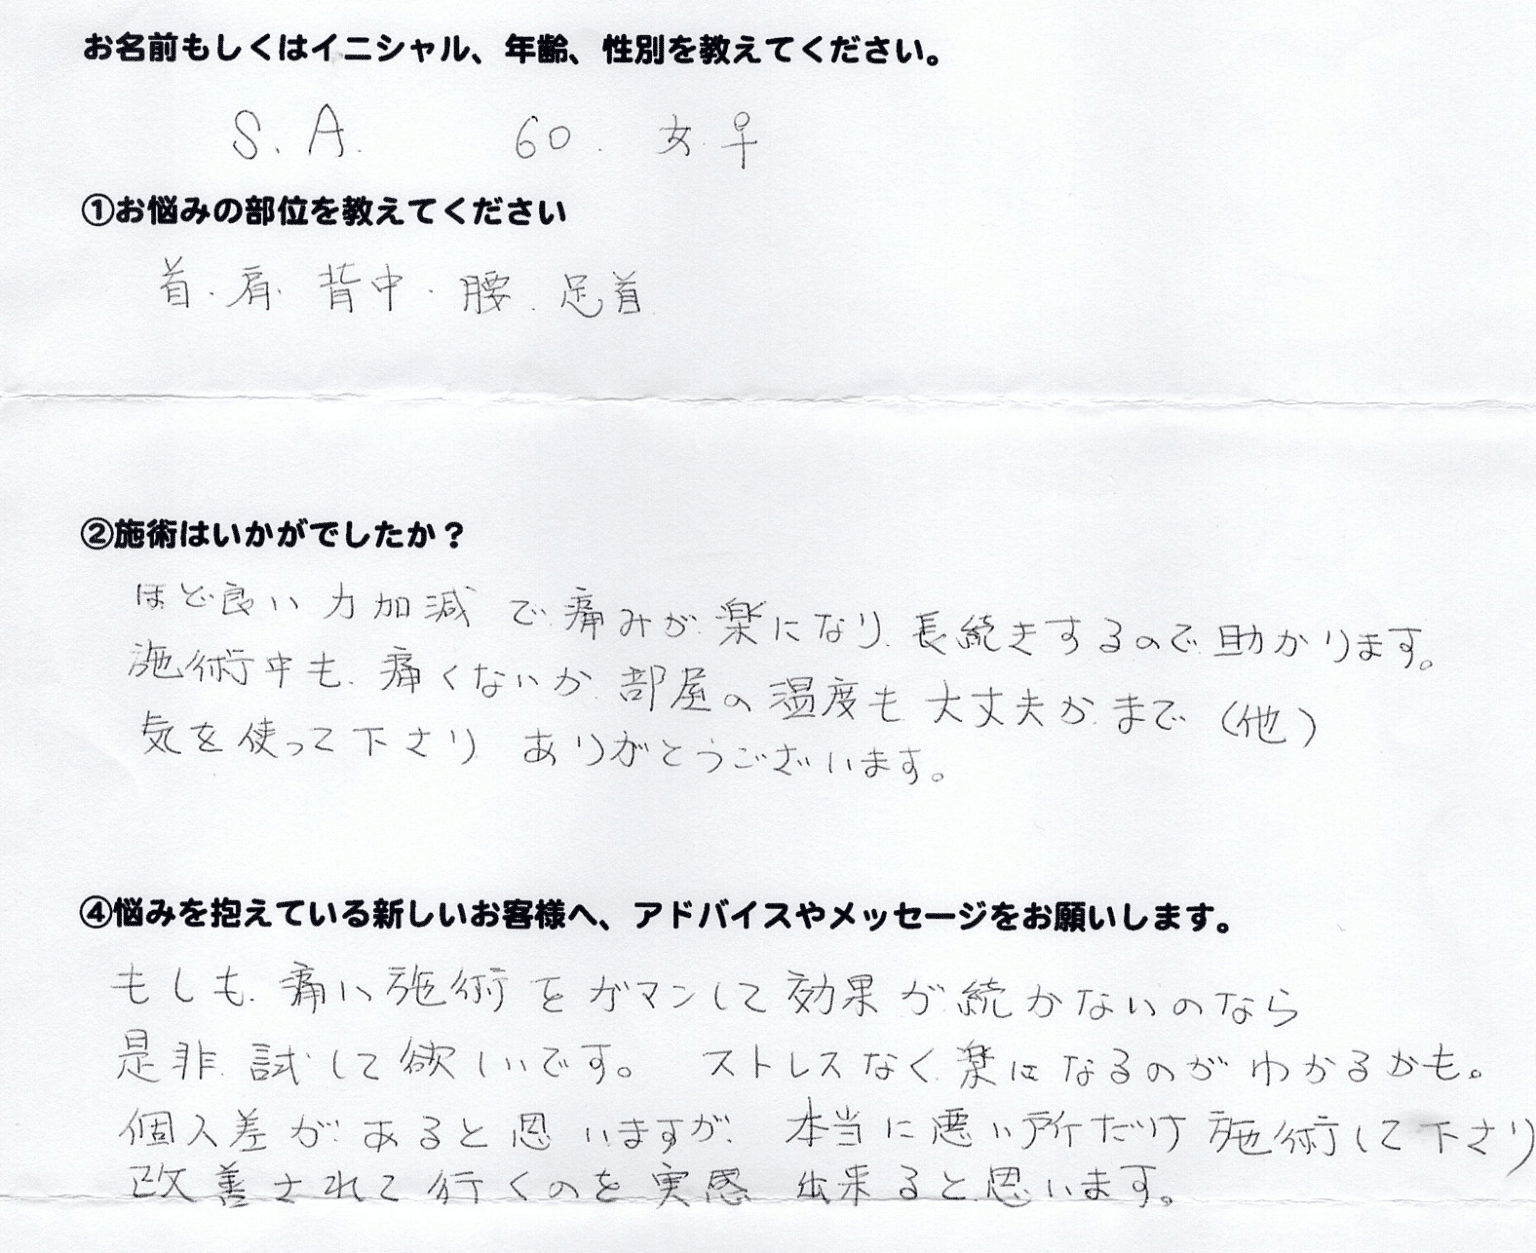 お名前もしくはイニシャル、年齢、性別を教えてください。
S. A. 60. 女.♀
①お悩みの部位を教えてください
首.肩.背中.腰.足首
②施術はいかがでしたか？
ほど良い力加減で痛みが楽になり、長続きするので助かります。
施術中も、痛くないか、部屋の温度も大丈夫か、まで（他）
気を使って下さり ありがとうございます。
④悩みを抱えている新しいお客様へ、アドバイスやメッセージをお願いします。
もしも、痛い施術をガマンして効果が続かないのなら
是非、試して欲しいです。 ストレスなく、楽になるのがわかるかも。
個人差があると思いますが、本当に悪い所だけ施術して下さり
改善されて行くのを実感出来ると思います。